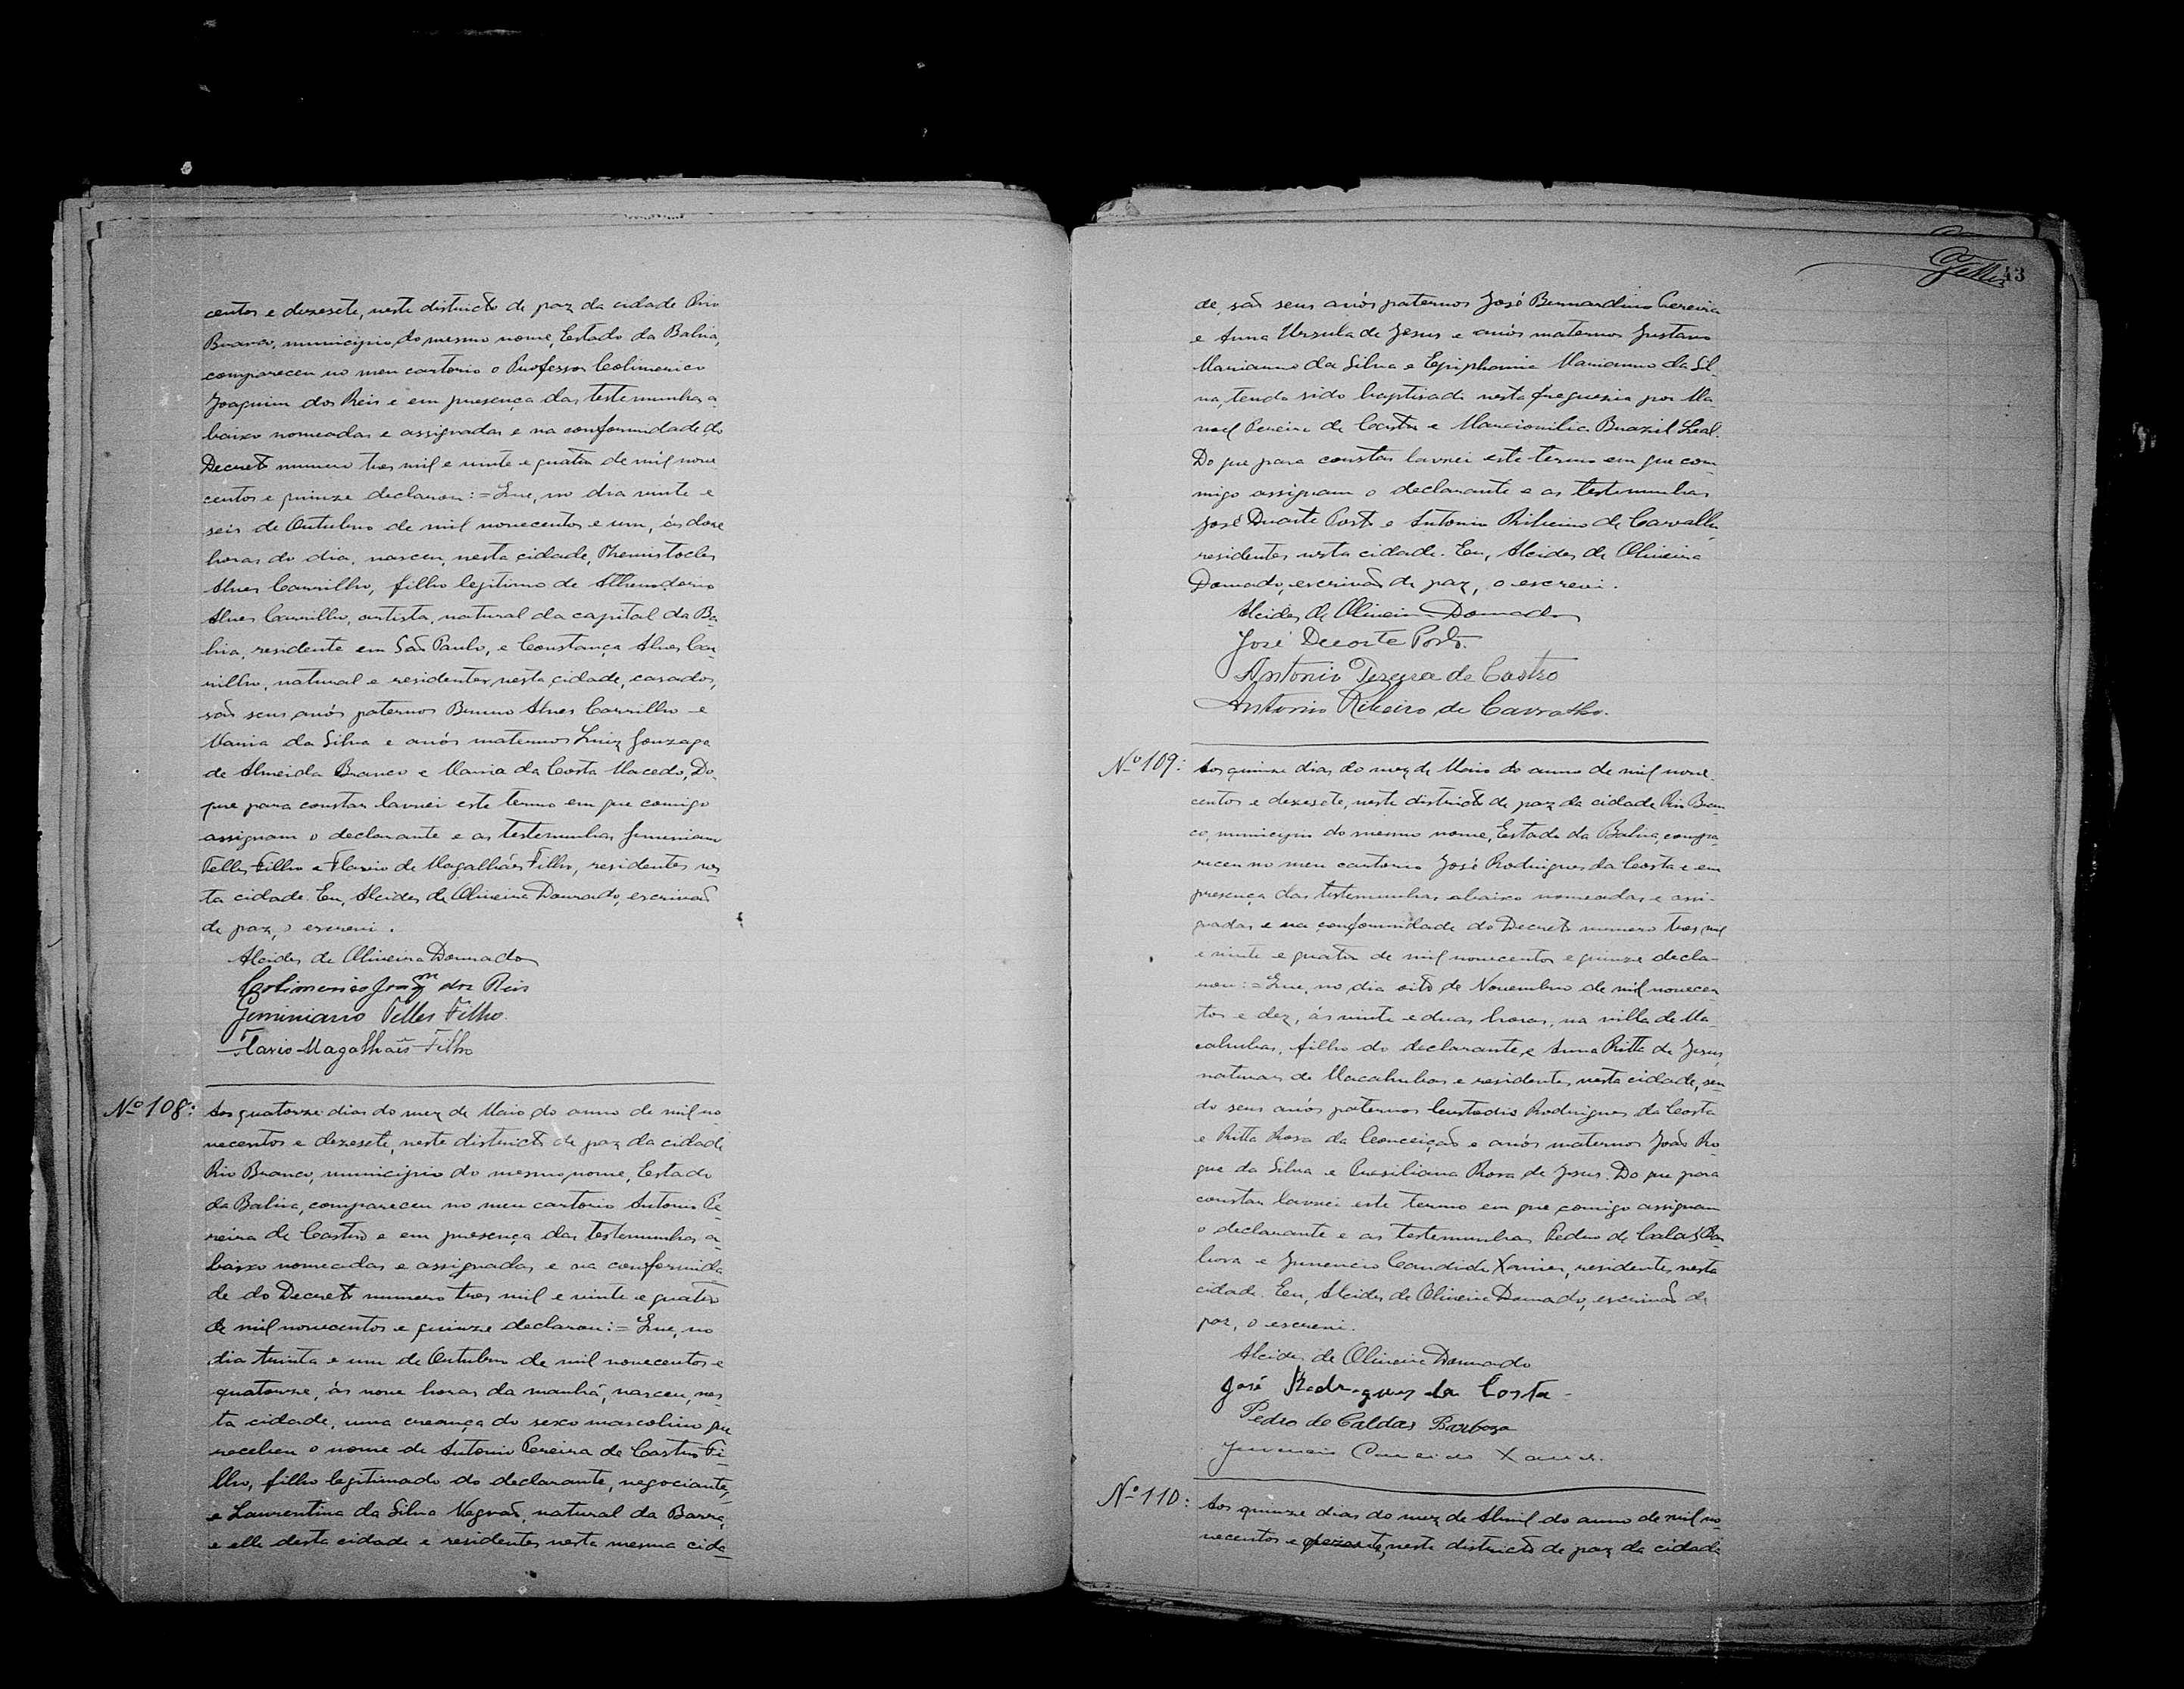 centos e dezesete, neste districto de paz da cidade Rio
Branco, municipio do mesmo nome, Estado da Bahia,
compareceu no meu cartorio o Professor Colimerico
Joaquim dos Reis e em presença das testemunhas a-
baixo nomeadas e assignadas e na conformidade do
Decreto numero tres mil e vinte e quatro de mil nove
centos e quinze declarou:=Que, no dia vinte e
seis de Outubro de mil novecentos e um, ás doze
horas do dia, nasceu, nesta cidade, Themistocles
Alves Carrilho, filho legitimo de
Alves Carrilho, artista, natural da capital da Ba-
hia, residente em São Paulo, e Constança Alves Car-
rilho, natural e residentes nesta cidade, casados,
são seus avós paternos Bruno Alves Carrilho e
Maria da Silva e avós maternos Luiz Gonzaga
de Almeida Branco e Maria da Costa Macedo. Do
que para constar lavrei este termo em que comigo
assignam o declarante e as testemunhas Geminiano
Telles Filho e Flavio de Magalhães Filho, residentes nes
ta cidade. Eu, Alcides de Oliveira Dourado, escrivão
de paz, o escrevi.
Alcides de Oliveira Dourado
Colimerico Joaqm dos Reis
Geminiano Telles Filho.
Flavio Magalhães Filho
Nº 108: Aos quatorze dias do mez de Maio do anno de mil no
vecentos e dezesete, neste districto de paz da cidade
Rio Branco, municipio do mesmo nome, Estado
da Bahia, compareceu no meu cartorio Antonio Pe-
reira de Castro e em presença das testemunhas a-
baixo nomeadas e assignadas e na conformida
de do Decreto numero tres mil e vinte e quatro
de mil novecentos e quinze declarou:=Que, no
dia trinta e um de Outubro de mil novecentos e
quatorze, ás nove horas da manhã, nasceu, nes
ta cidade, uma creança do sexo masculino que
recebeu o nome de Antonio Pereira de Castro Fi-
lho, filho legitimado do declarante, negociante,
e Laurentina da Silva natural da Barra,
e elle desta cidade e residentes nesta mesma cida-
43
de, são seus avós paternos José Bernardino Pereira
e Anna Ursula de Jesus e avós maternos Gustavo
Marianno da Silva e Epiphania Marianno da Sil-
va, tendo sido baptisado nesta freguezia por Ma-
noel Pereira de Castro e Marcionilia Brazil Leal.
Do que para constar lavrei este termo em que com
migo assignam o declarante e as testemunhas
José Duarte Porto e Antonio Ribeiro de Carvalho,
residentes nesta cidade. Eu, Alcides de Oliveira
Dourado, escrivão de paz, o escrevi.
Alcides de Oliveira Dourado
José Duarte Porto.
Antonio Pereira de Castro
Antonio Ribeiro de Carvalho.
Nº 109: Aos quinze dias do mez de Maio do anno de mil nove-
centos e dezesete, neste districto de paz da cidade Rio Bran
co, municipio do mesmo nome, Estado da Bahia, compa
receu no meu cartorio José Rodrigues da Costa e em
presença das testemunhas abaixo nomeadas e assi-
gnadas e na conformidade do Decreto numero tres mil
e vinte e quatro de mil novecentos e quinze decla-
rou:=Que, no dia oito de Novembro de mil novecen
tos e dez, ás vinte e duas horas, na villa de Ma-
cahubas, filho do declarante e Anna Ritta de Jesus,
naturaes de Macahubas e residentes nesta cidade, sen
do seus avós paternos Custodio Rodrigues da Costa
e Ritta Rosa da Conceição e avós maternos João Ro-
que da Silva e Rosa de Jesus. Do que para
constar lavrei este termo em que comigo assignam
o declarante e as testemunhas Pedro de Caldas Bar
bosa e Juvencio Candido Xavier, residentes nesta
cidade. Eu, Alcides de Oliveira Dourado, escrivão de
paz, o escrevi.
Alcides de Oliveira Dourado
José Rodrigues da Costa
Pedro de Caldas Barboza
Juvencio Xavier.
Nº 110: Aos quinze dias do mez de Abril do anno de mil no
vecentos e dezesete, neste districto de paz da cidade